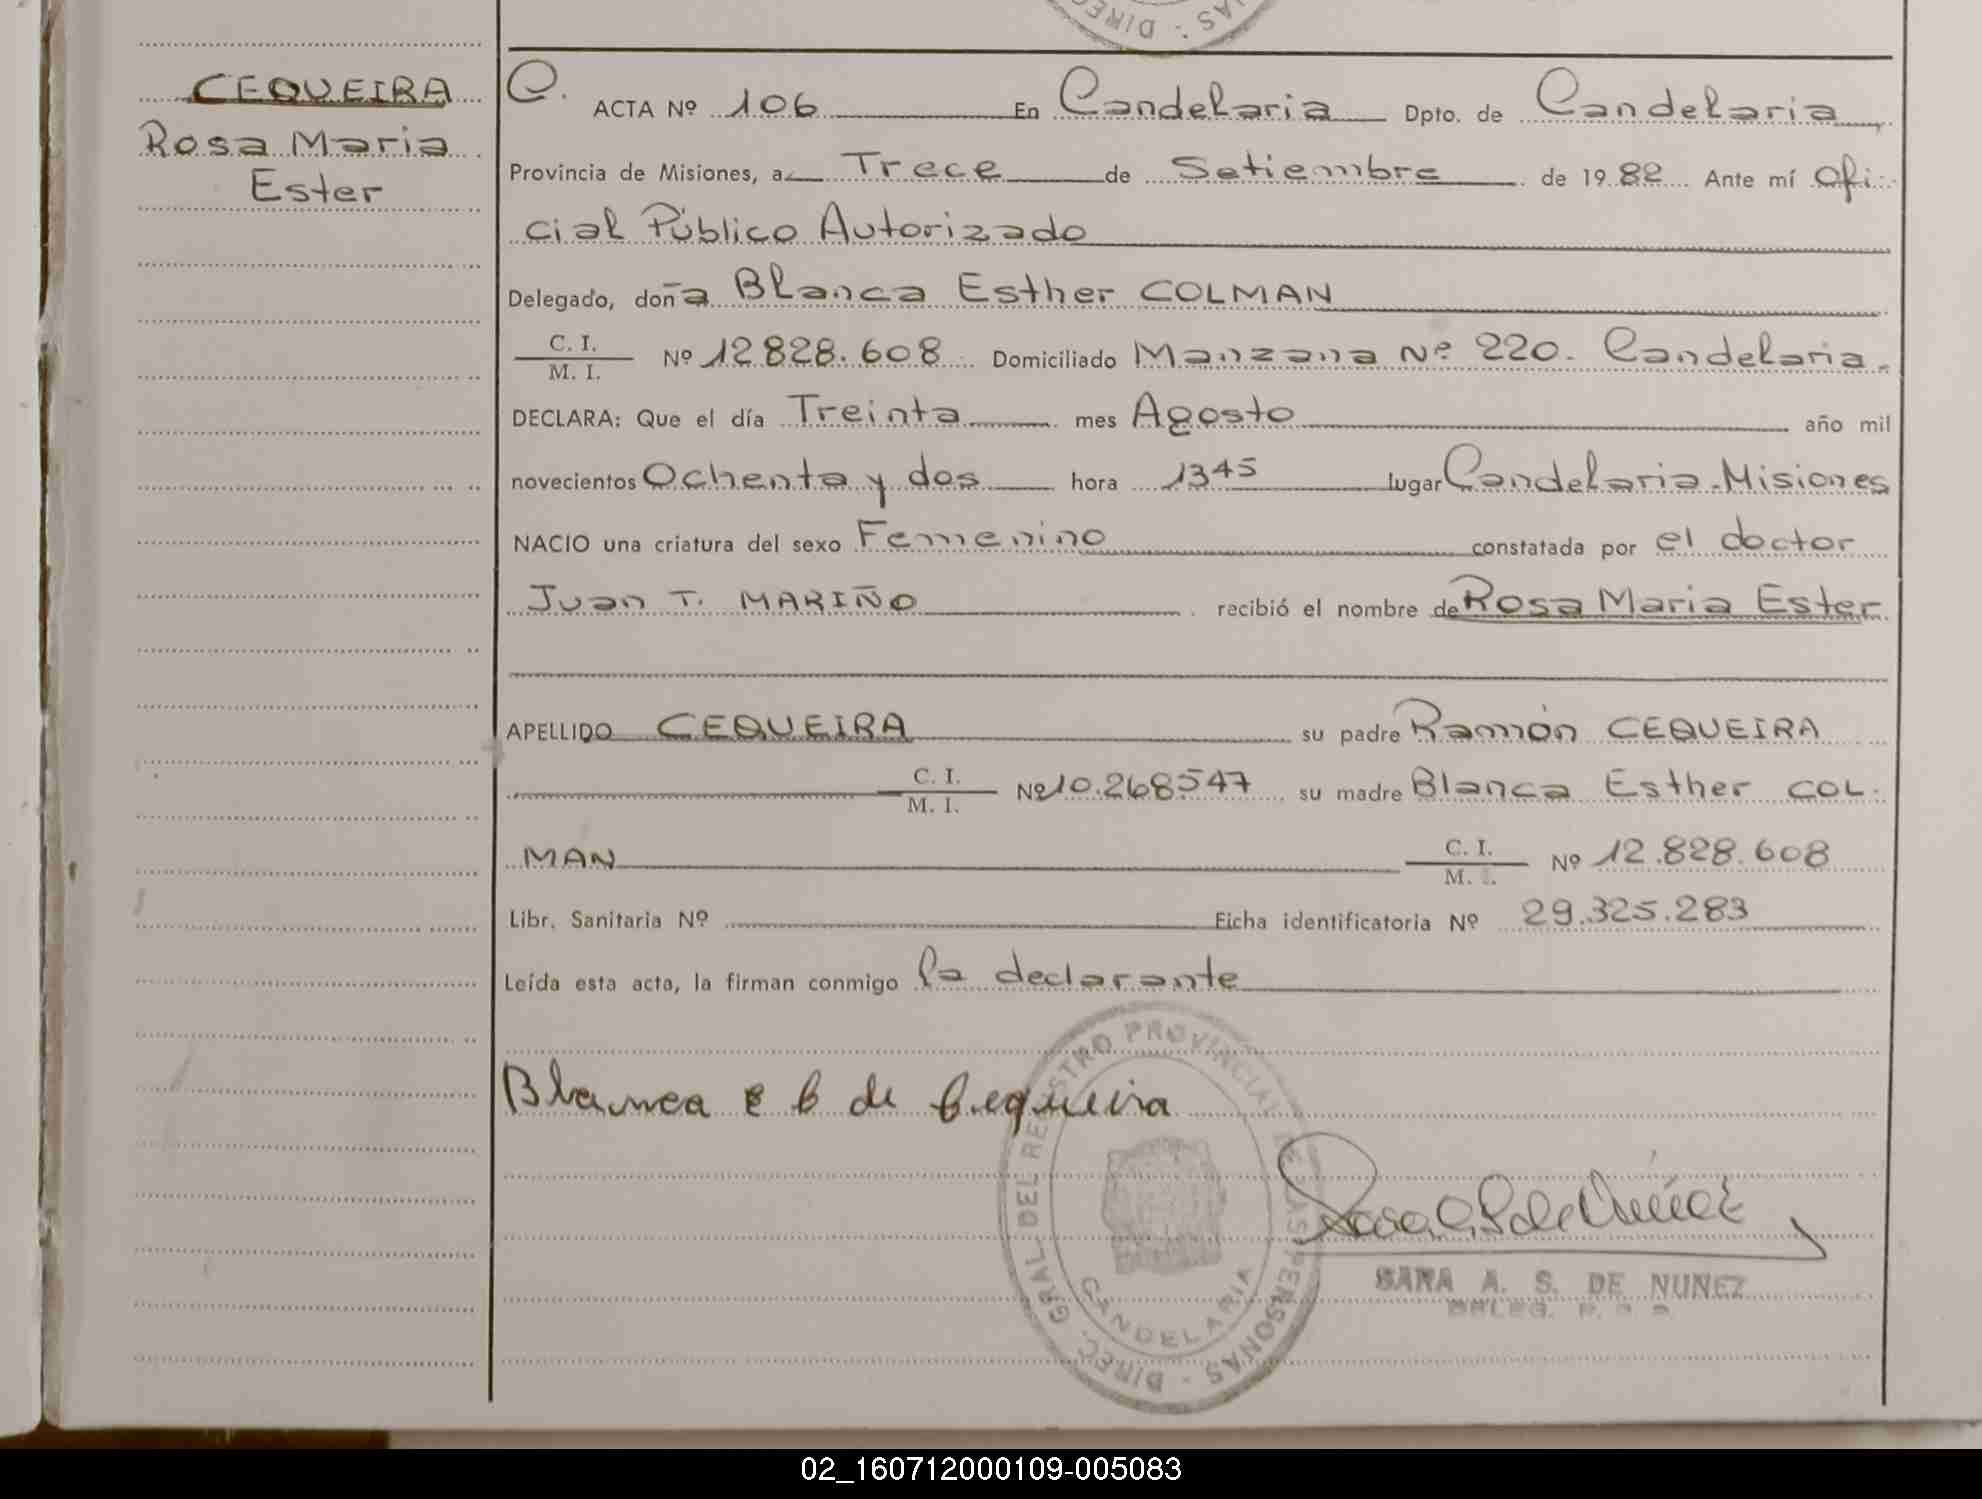 DIREC
CEQUEIRA
Rosa Maria
Ester
C. ACTA Nº 106 En Candelaria Dpto. de Candelaria,
Provincia de Misiones, a Trece de Setiembre de 1982 Ante mí Ofi-
cial Público Autorizado
Delegado, doña Blanca Esther COLMAN
C. I. / M. I. Nº 12828.608 Domiciliado Manzana Nº 220. Candelaria.
DECLARA: Que el día Treinta mes Agosto año mil
novecientos Ochenta y dos hora 1345 lugar Candelaria-Misiones
NACIO una criatura del sexo Femenino constatada por el doctor
Juan T. MARIÑO recibió el nombre de Rosa Maria Ester
APELLIDO CEQUEIRA su padre Ramón CEQUEIRA
C. I. / M. I. Nº 10.268547 su madre Blanca Esther COL-
MAN C. I. / M. I. Nº 12.828.608
Libr. Sanitaria Nº Ficha identificatoria Nº 29.325.283
Leída esta acta, la firman conmigo la declarante
Blanca E C de Cequeira
DIREC. GRAL. DEL REGISTRO PROVINCIAL DE LAS PERSONAS
CANDELARIA
SARA A. S. DE NUÑEZ
DELEG. R. P. P.
02_160712000109-005083